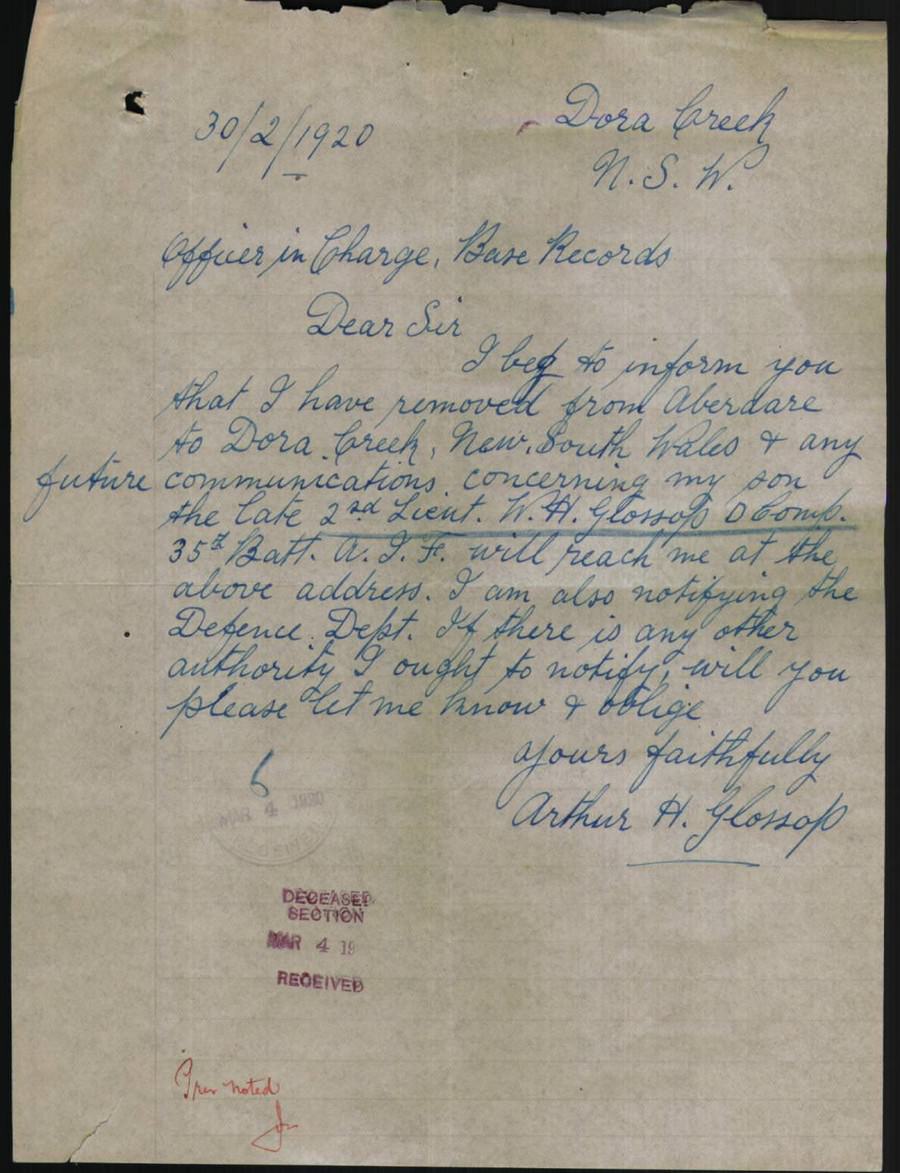 30/2/1920
Dora Creek
N. S. W.
Officer in Charge, Base Records
Dear Sir
I beg to inform you
that I have removed from Aberdare
to Dora Creek, New South Wales & any
future communications concerning my son
the late 2nd Lieut. W. H. Glossop D Comp.
35th Batt. A. I. F. will reach me at the
above address. I am also notifying the
Defence Dept. If there is any other
authority I ought to notify, will you
please let me know & oblige
yours faithfully
Arthur H. Glossop
6
MAR 4 1920
DECEASED
SECTION
MAR 4 19
RECEIVED
noted